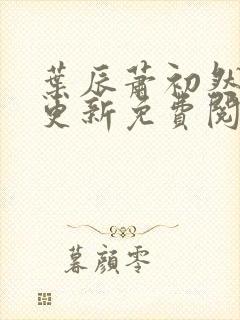 葉辰蕭初然
更新免費閱
暮顏零